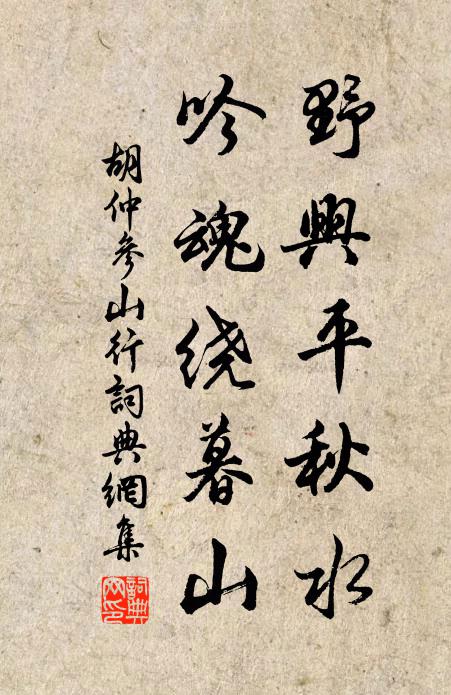 野興平秋水
吟魂绕暮山
胡仲參山行詞典網集
詞典网印